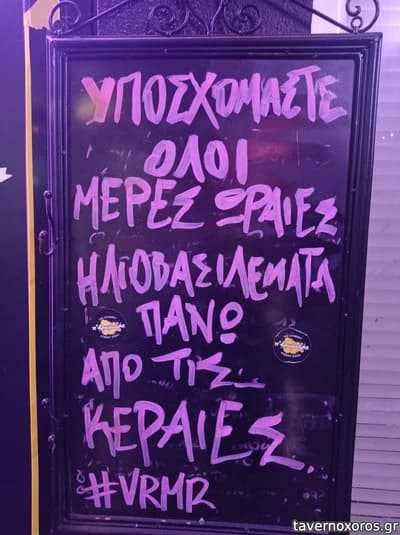 ΥΠΟΣΧΟΜΑΣΤΕ
ΟΛΟΙ
ΜΕΡΕΣ ΩΡΑΙΕΣ
ΗΛΙΟΒΑΣΙΛΕΜΑΤΑ
ΠΑΝΩ
ΑΠΟ ΤΙΣ...
ΚΕΡΑΙΕΣ.
#VRMR
tavernoxoros.gr